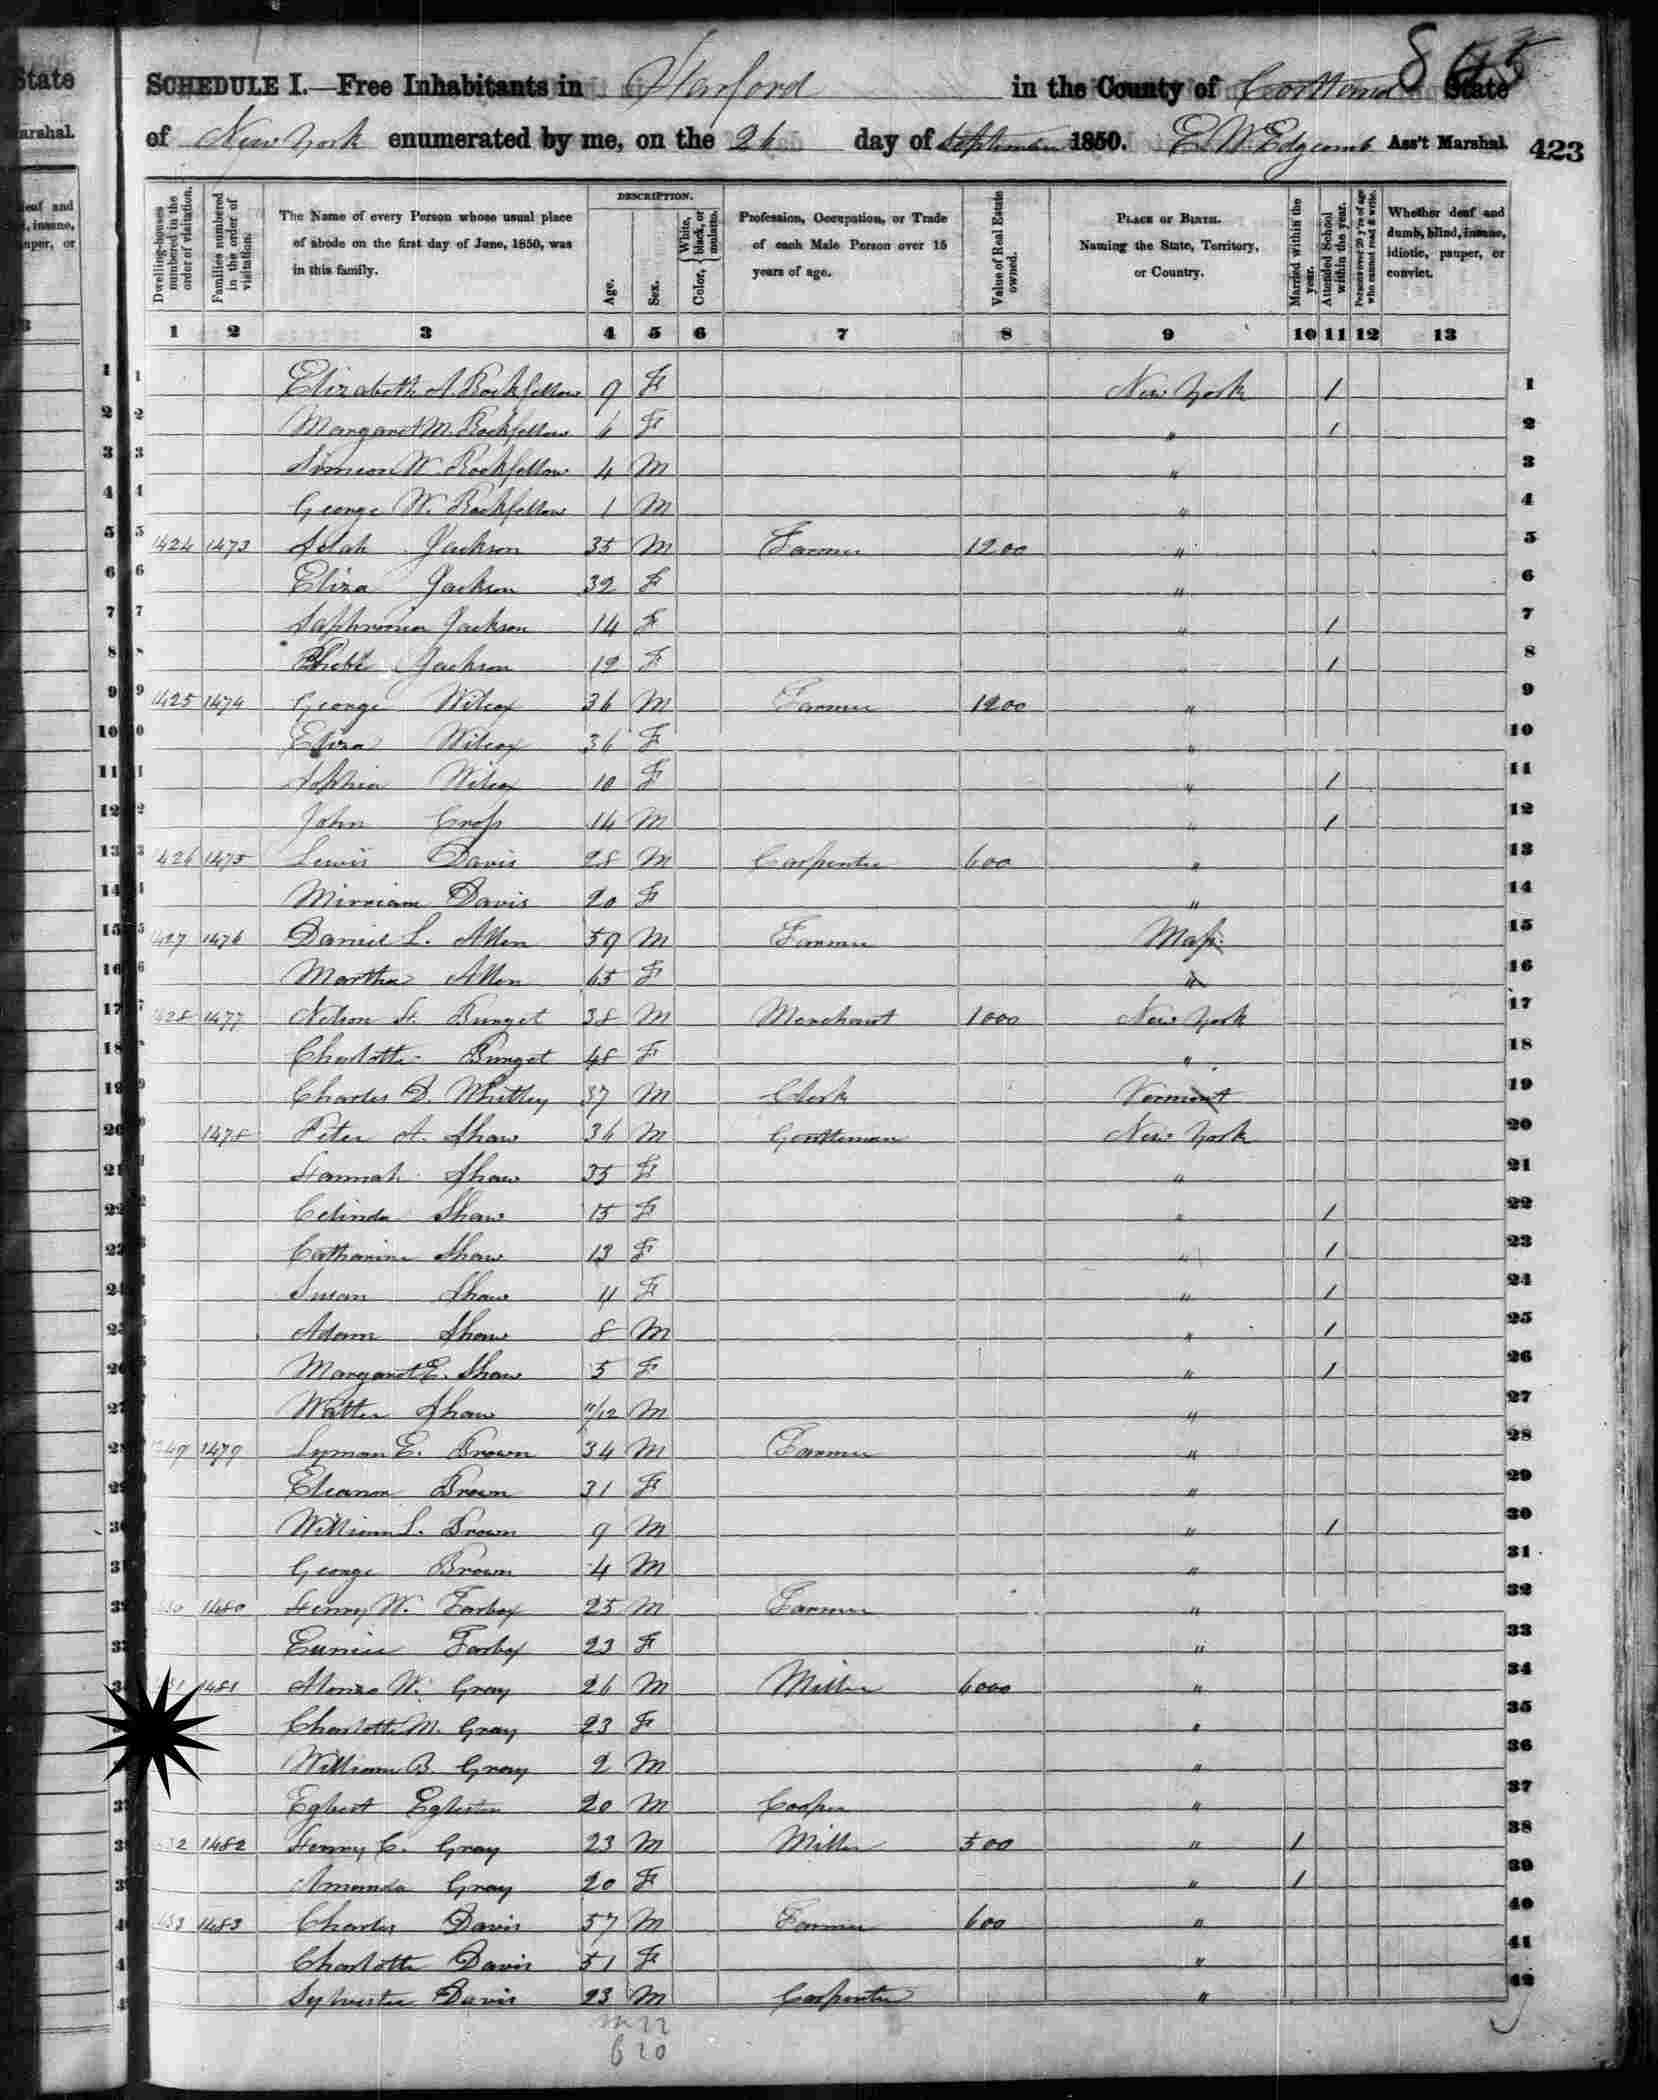 State
Marshal.
SCHEDULE I.—Free Inhabitants in Harford in the County of Cortland State
of New York enumerated by me, on the 26 day of September 1850. E. W. Edgcomb Ass't Marshal. 423
Dwelling-houses numbered in the order of visitation.
Families numbered in the order of visitation.
The Name of every Person whose usual place of abode on the first day of June, 1850, was in this family.
DESCRIPTION.
Age.
Sex.
Color, { White, black, or mulatto.
Profession, Occupation, or Trade of each Male Person over 15 years of age.
Value of Real Estate owned.
PLACE OF BIRTH. Naming the State, Territory, or Country.
Married within the year.
Attended School within the year.
Persons over 20 y'rs of age who cannot read & write.
Whether deaf and dumb, blind, insane, idiotic, pauper, or convict.
1 2 3 4 5 6 7 8 9 10 11 12 13
1 Elizabeth A. Rockfellow 9 F New York 1 1
2 Margaret M. Rockfellow 6 F " 1 2
3 Simeon W. Rockfellow 4 M " 3
4 George W. Rockfellow 1 M " 4
5 1424 1473 Jackson 35 M Farmer 1200 " 5
6 Eliza Jackson 32 F " 6
7 Saphronia Jackson 14 F " 1 7
8 Phebe Jackson 12 F " 1 8
9 1425 1474 George Wilcox 36 M Farmer 1200 " 9
10 Eliza Wilcox 36 F " 10
11 Sophia Wilcox 10 F " 1 11
12 John Cross 14 M " 1 12
13 1426 1475 Lewis Davis 28 M Carpenter 600 " 13
14 Mirriam Davis 20 F " 14
15 1427 1476 Daniel L. Allen 59 M Farmer Mass. 15
16 Martha Allen 65 F " 16
17 1428 1477 Nelson H. Burget 38 M Merchant 1000 New York 17
18 Charlotte Burget 48 F " 18
19 Charles D. Whitley 37 M Clerk Vermont 19
20 1478 Peter A. Shaw 36 M Gentleman New York 20
21 Hannah Shaw 35 F " 21
22 Celinda Shaw 15 F " 1 22
23 Catharine Shaw 13 F " 1 23
24 Susan Shaw 11 F " 1 24
25 Adam Shaw 8 M " 1 25
26 Margaret E. Shaw 5 F " 1 26
27 Walter Shaw 11/12 M " 27
28 1479 Lyman E. Brown 34 M Farmer " 28
29 Eleanor Brown 31 F " 29
30 William L. Brown 9 M " 1 30
31 George Brown 4 M " 31
32 1480 Henry W. Tarbox 25 M Farmer " 32
33 Eunice Tarbox 23 F " 33
34 1481 Alonzo W. Gray 26 M Miller 6000 " 34
Charlotte M. Gray 23 F " 35
William B. Gray 2 M " 36
Egbert Egleston 20 M Cooper " 37
1482 Henry C. Gray 23 M Miller 500 " 1 38
Amanda Gray 20 F " 1 39
1483 Charles Davis 57 M Farmer 600 " 40
Charlotte Davis 51 F " 41
Sylvester Davis 23 M Carpenter " 42
m 22
f 20